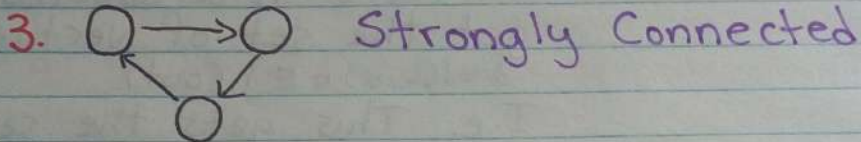 3. Strongly Connected